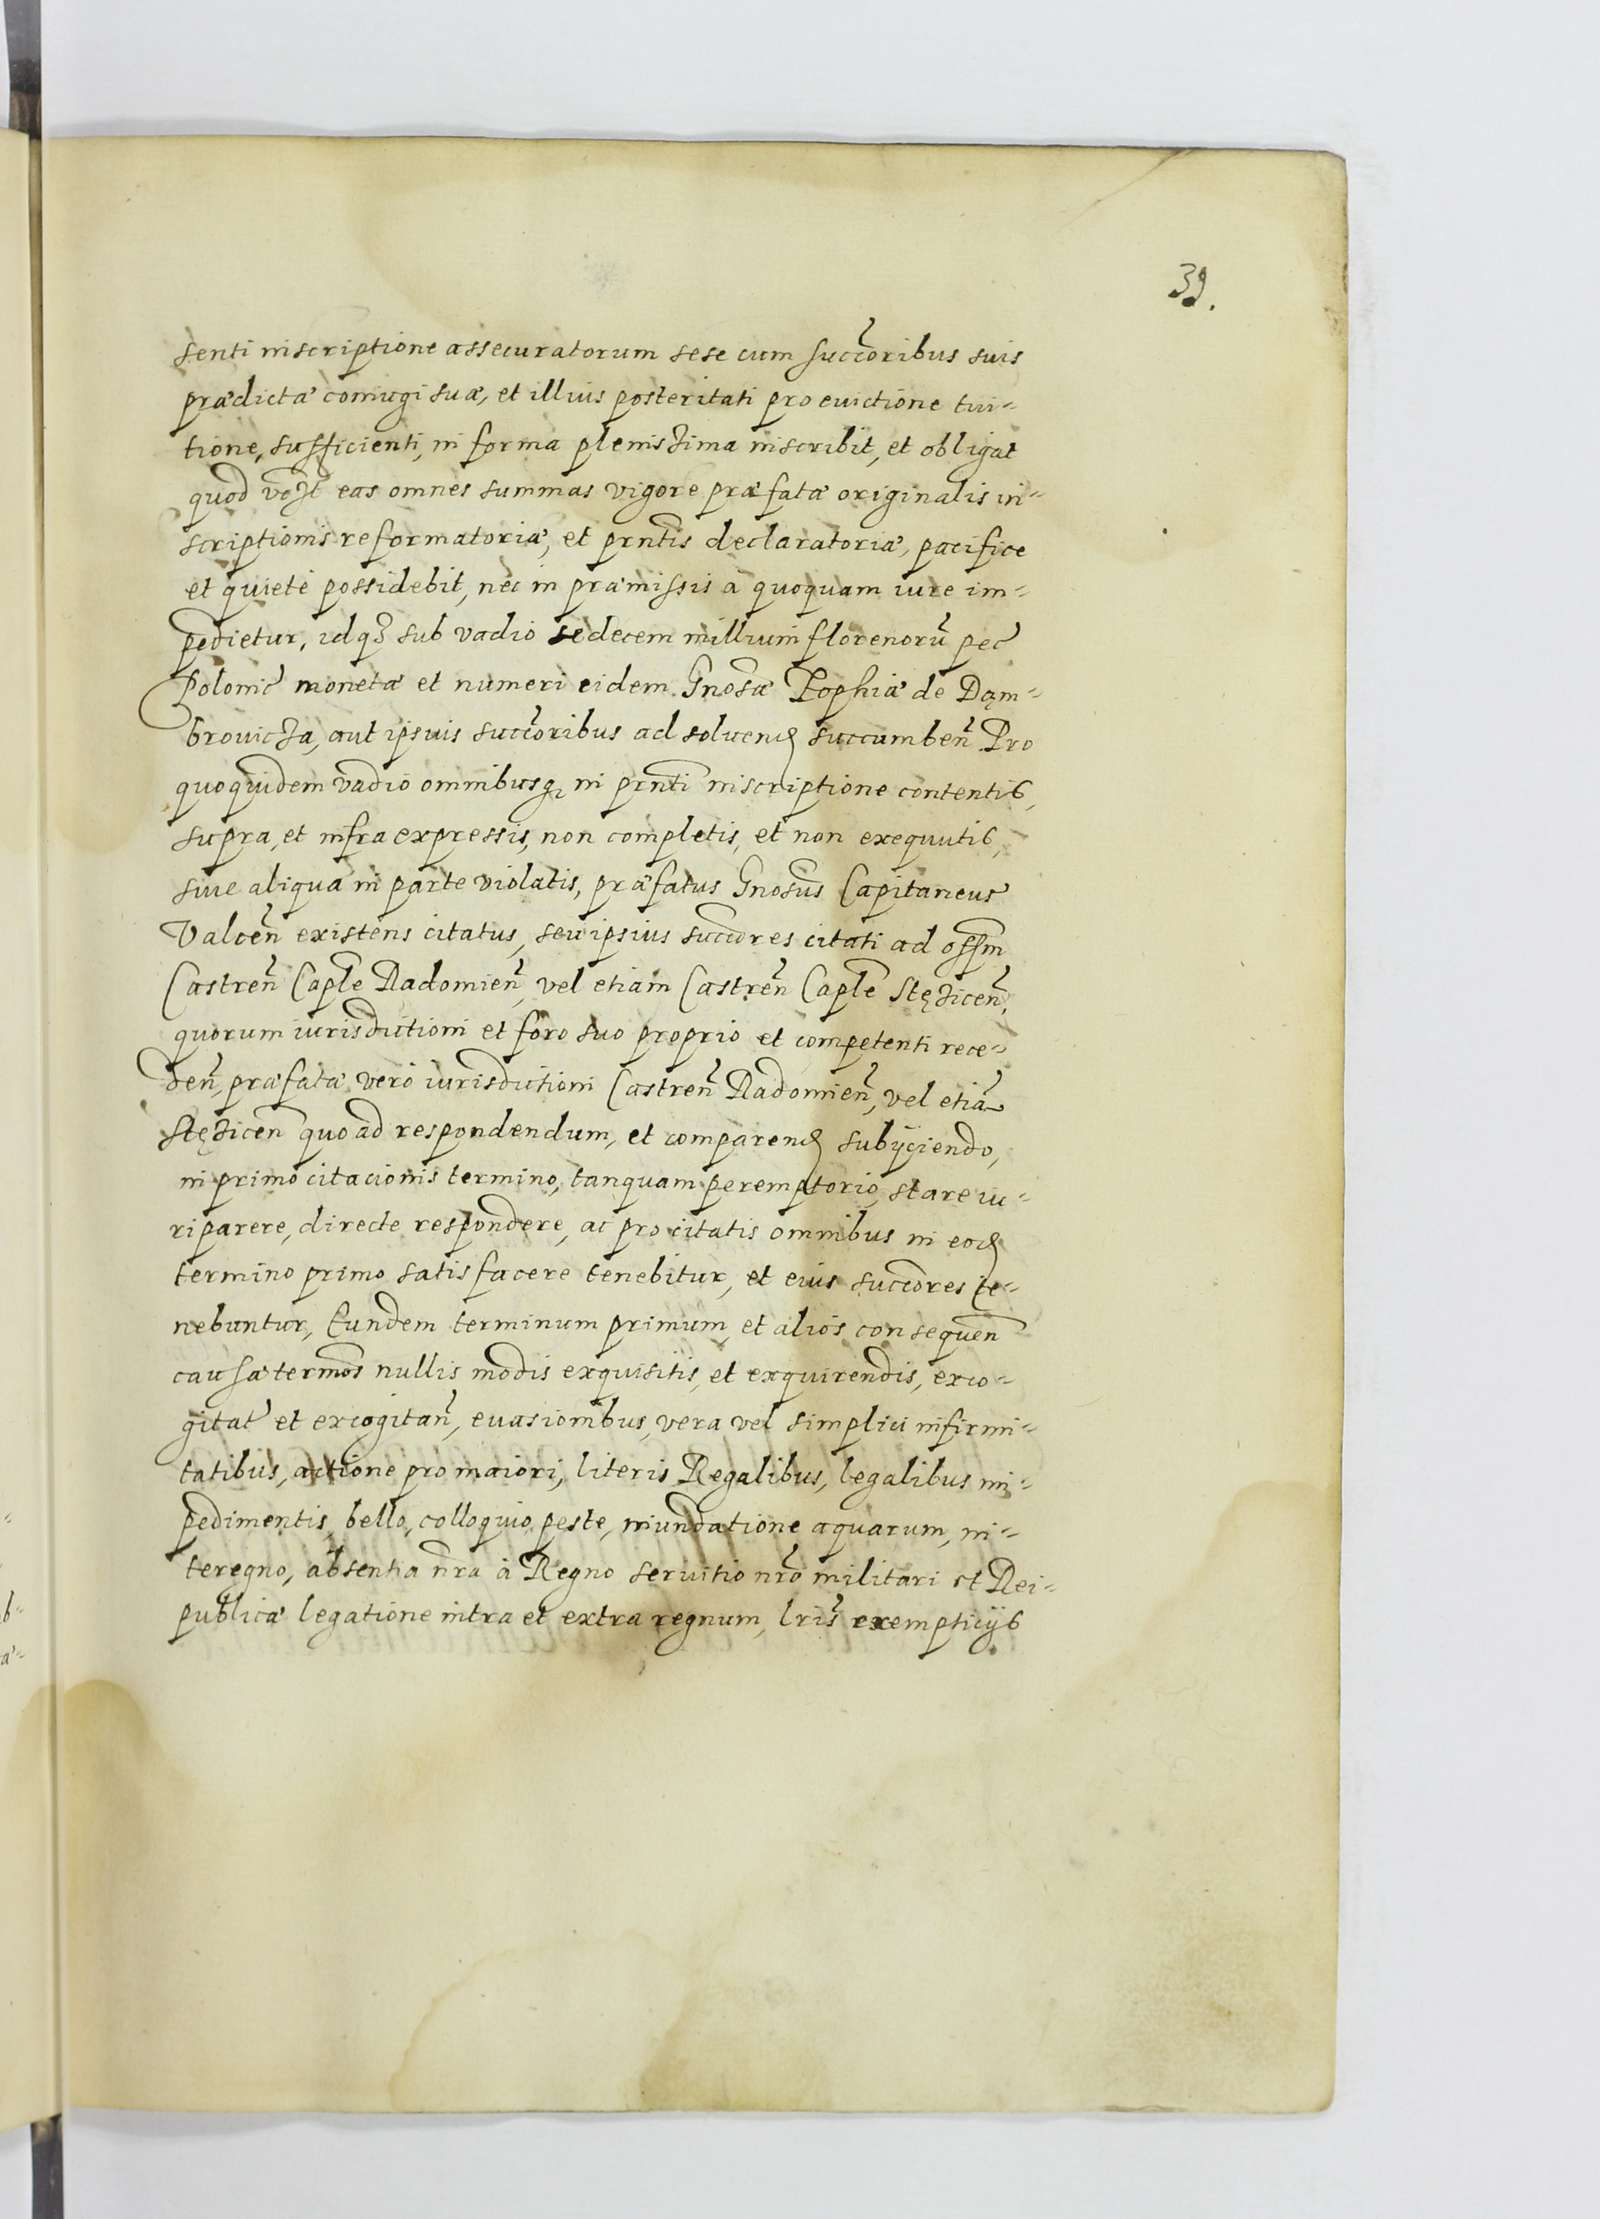 39.
senti inscriptione assecuratorum sese cum succoribus suis
prædictæ coniugi suæ, et illius posteritati pro evictione tui-
tione, sufficienti, in forma plenissima inscribit, et obligat
quod eas omnes summas vigore præfatæ originalis in-
scriptionis reformatoriæ, et prntis declaratoriæ, pacifice
et quiete possidebit, nec in præmissis a quoquam iure im-
pedietur, idq3 sub vadio sedecem millium florenorū pec
Polonic monetæ et numeri eidem Gnosæ Zophiæ de Dąm-
brouicza, aut ipsius succoribus ad soluend succumben Pro
quoquidem vadio omnibusq3 in prnti inscriptione contentis,
supra, et infra expressis, non completis, et non exequutis,
siue aliqua in parte violatis, præfatus Gnosus Capitaneus
Valcen existens citatus, seu ipsius succores citati ad offm
Castren Caple Radomien, vel etiam Castren Caple Stęzicen,
quorum iurisdictioni et foro suo proprio et competenti rece-
den, præfatæ vero iurisdictioni Castren Radomien, vel etiā
Stęzicen quo ad respondendum, et comparend subijciendo,
in primo citacionis termino, tanquam peremptorio, stare iu-
ri parere, directe respondere, ac pro citatis omnibus in eod
termino primo satisfacere tenebitur, et eius succores te-
nebuntur, Eundem terminum primum, et alios consequen
causæ termos nullis modis exquisitis, et exquirendis, exco-
gitat et excogitan, euasionibus, vera vel simplici infirmi-
tatibus, actione pro maiori, literis Regalibus, legalibus im-
pedimentis, bello, colloquio, peste, inundatione aquarum, in-
teregno, absentia nra à Regno seruitio nro militari et Rei-
publicæ legatione intra et extra regnum, lris exempticijs